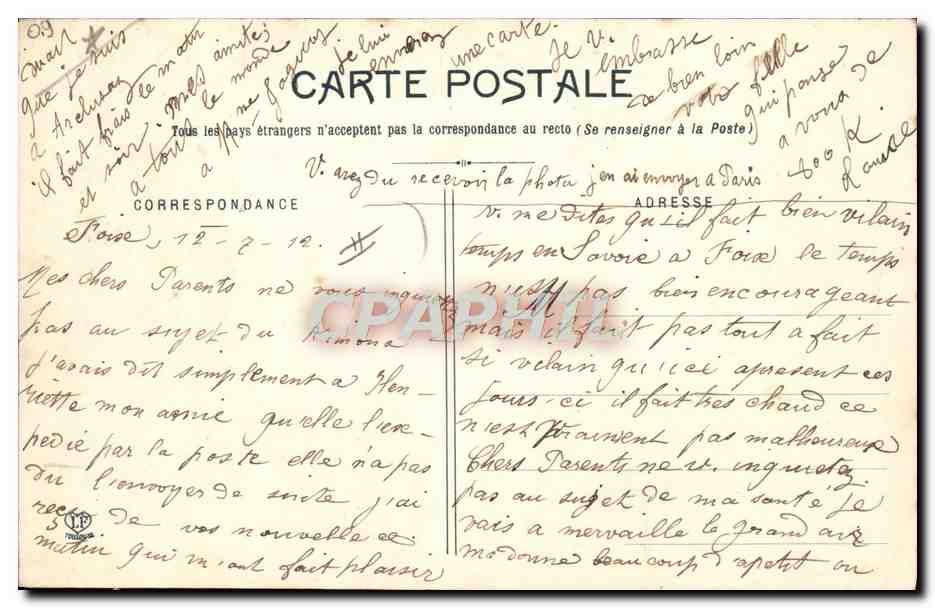 CARTE POSTALE
Tous les pays étrangers n'acceptent pas la correspondance au recto (Se renseigner à la Poste)
CORRESPONDANCE
ADRESSE
Foix, 12-7-12.
Mes chers Parents ne vous inquietez
pas au sujet du Kimona
j'avais dit simplement a Hen-
riette mon amie qu'elle l'ex-
pedie par la poste elle n'a pas
du l'envoyer de suite j'ai
reçu de vos nouvelle ce
matin qui m'ont fait plaisir
V. avez du recevoir la photo j'en ai envoyer a Paris
V. me dites qu'il fait bien vilain
temps en Savoie a Foix le temps
n'est pas bien encourageant
mais il fait pas tout a fait
si velain qu'ici apresent ces
jours-ci il fait tres chaud ce
n'est vraiment pas malheureux
Chers Parents ne v. inquietez
pas au sujet de ma santé je
vais a mervaille le grand air
me donne beaucoup d'apetit on
09
que je suis
il fait frais le matin
et soir, mes amites
a tout le monde
a Me
je lui
enverrai
une carte.
Je v.
embrasse
de bien loin
votre fille
qui panse
a vous
Louise
LF
Toulouse
CPAPHIL